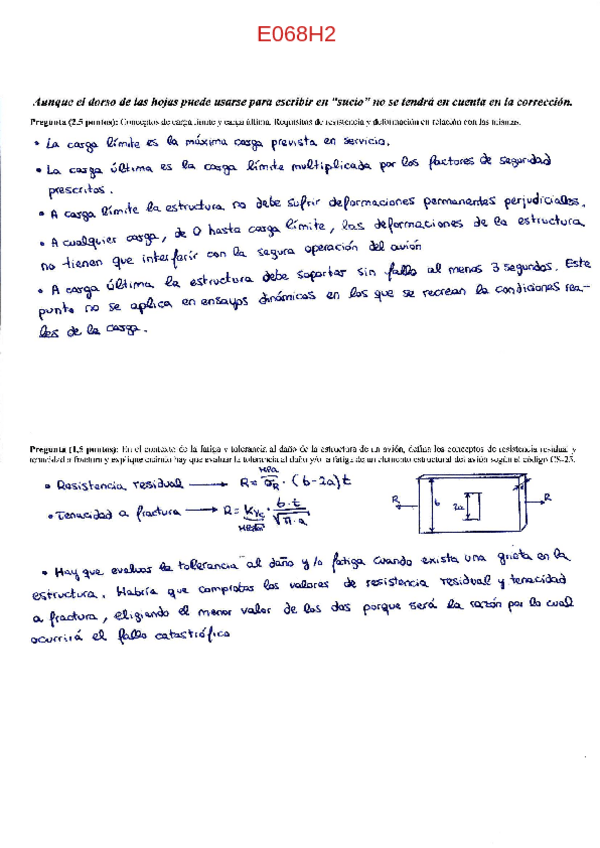 E068H2
Aunque el dorso de las hojas puede usarse para escribir en "sucio" no se tendrá en cuenta en la corrección.
Pregunta (2,5 puntos): Conceptos de carga límite y carga última. Requisitos de resistencia y deformación en relación con las mismas.
• La carga límite es la máxima carga prevista en servicio.
• La carga última es la carga límite multiplicada por los factores de seguridad
prescritos.
• A carga límite la estructura no debe sufrir deformaciones permanentes perjudiciales.
• A cualquier carga, de 0 hasta carga límite, las deformaciones de la estructura
no tienen que interferir con la segura operación del avión
• A carga última la estructura debe soportar sin fallo al menos 3 segundos. Este
punto no se aplica en ensayos dinámicos en los que se recrean la condiciones rea-
les de la carga.
Pregunta (1,5 puntos): En el contexto de la fatiga y tolerancia al daño de la estructura de un avión, defina los conceptos de resistencia residual y
tenacidad a fractura y explique cuándo hay que evaluar la tolerancia al daño y/o la fatiga de un elemento estructural del avión según el código CS-25.
• Resistencia residual → R = σR · (b-2a)t
MPa
• Tenacidad a fractura → R = KIC · b·t / √π·a
R b 2a t R
• Hay que evaluar la tolerancia al daño y/o fatiga cuando exista una grieta en la
estructura. Habría que comprobar los valores de resistencia residual y tenacidad
a fractura, eligiendo el menor valor de los dos porque será la razón por lo cual
ocurrirá el fallo catastrófico